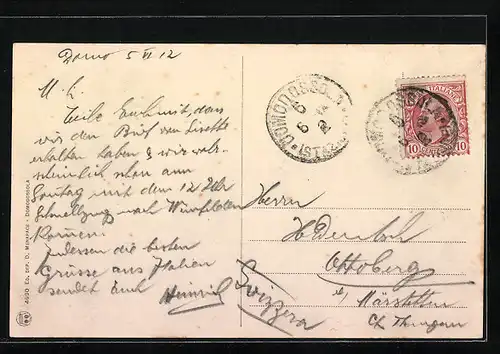 Domo 5 VI 12
M. L.
Teile Euch mit, dass
wir den Brief von Lisette
erhalten haben & wir wahr-
scheinlich schon am
Sonntag mit dem 12 Uhr
Schnellzug nach Weinfelden
kommen.
Indessen die besten
Grüsse aus Italien
sendet Euch
Heinrich
DOMODOSSOLA
5 6 12
ISTAZ
10 10
Herrn
Ottoberg
b/ Märstetten
Ct. Thurgau
Svizzera
4690 ED. DEP. D. DOMODOSSOLA